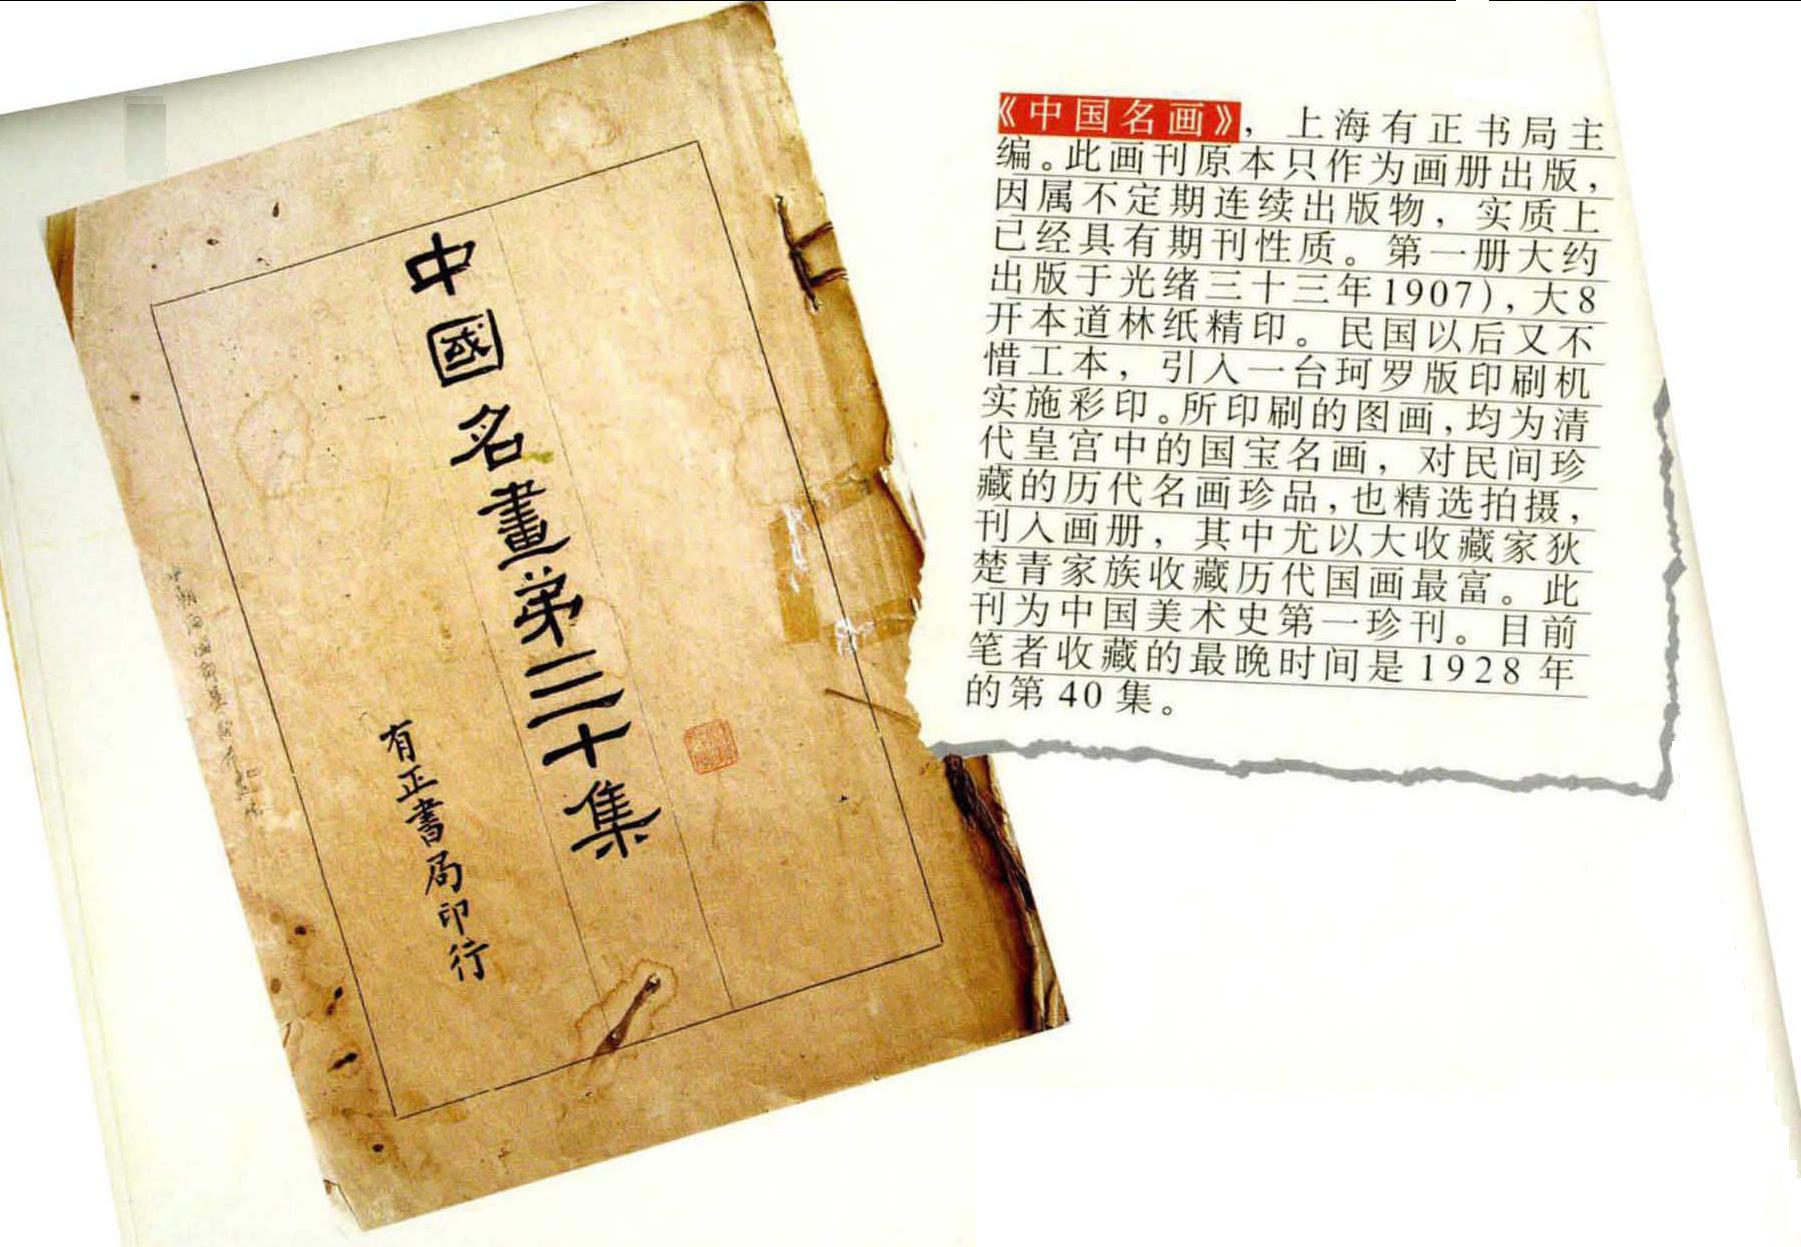 中國名畫弟三十集
有正書局印行
《中国名画》，上海有正书局主
编。此画刊原本只作为画册出版，
因属不定期连续出版物，实质上
已经具有期刊性质。第一册大约
出版于光绪三十三年1907)，大8
开本道林纸精印。民国以后又不
惜工本，引入一台珂罗版印刷机
实施彩印。所印刷的图画，均为清
代皇宫中的国宝名画，对民间珍
藏的历代名画珍品，也精选拍摄，
刊入画册，其中尤以大收藏家狄
楚青家族收藏历代国画最富。此
刊为中国美术史第一珍刊。目前
笔者收藏的最晚时间是1928年
的第40集。